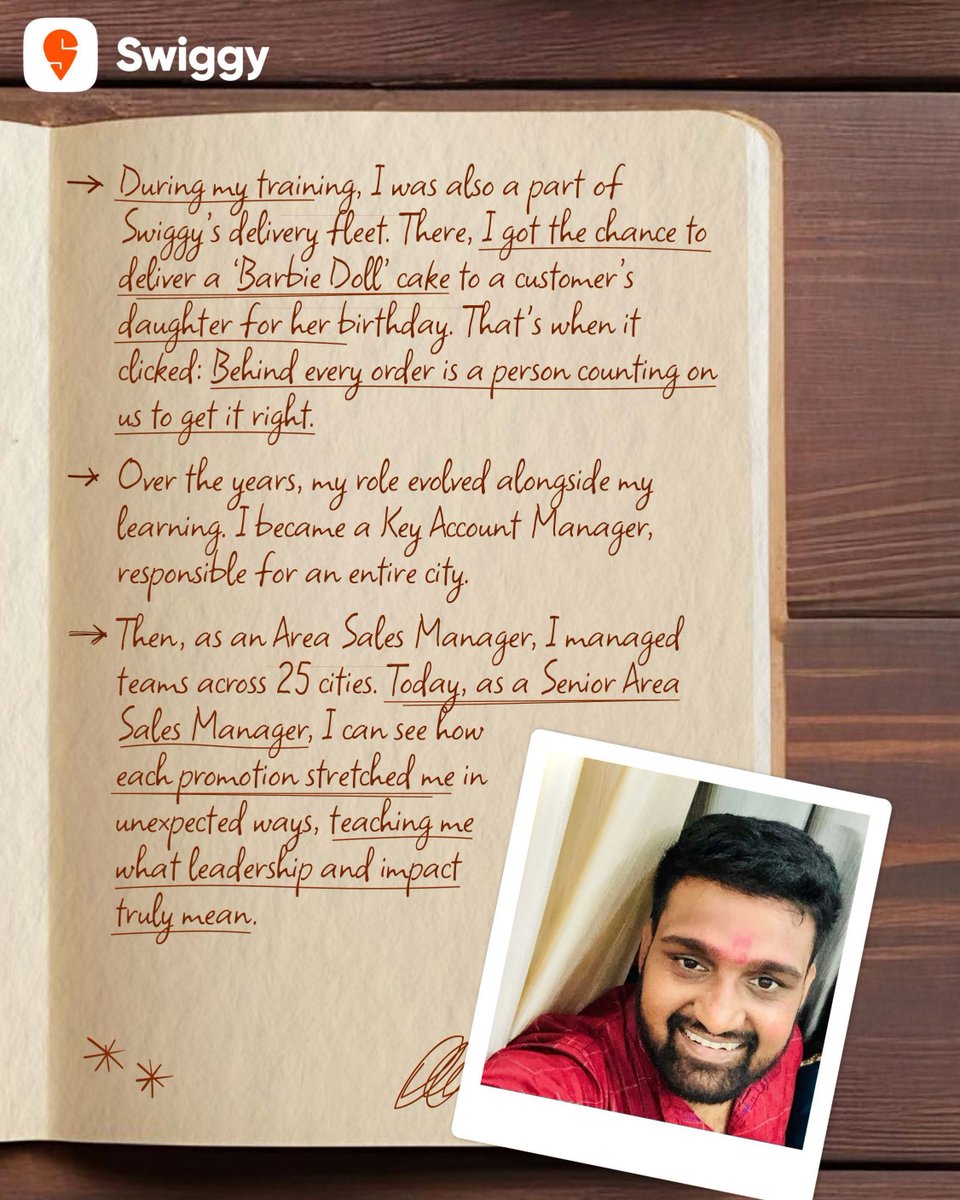 Swiggy
→ During my training, I was also a part of
Swiggy's delivery fleet. There, I got the chance to
deliver a 'Barbie Doll' cake to a customer's
daughter for her birthday. That's when it
clicked: Behind every order is a person counting on
us to get it right.
→ Over the years, my role evolved alongside my
learning. I became a Key Account Manager,
responsible for an entire city.
→ Then, as an Area Sales Manager, I managed
teams across 25 cities. Today, as a Senior Area
Sales Manager, I can see how
each promotion stretched me in
unexpected ways, teaching me
what leadership and impact
truly mean.